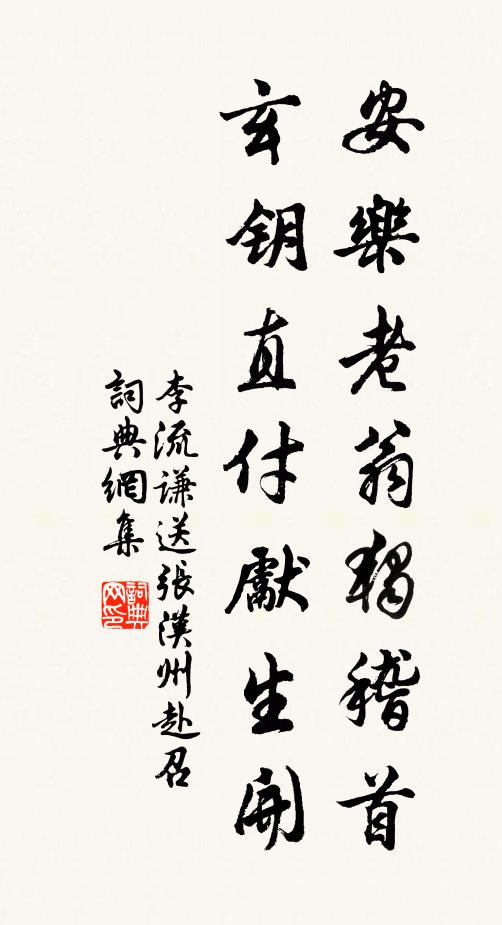 安樂老翁獨稽首
玄钥直付獻生開
李流謙送張漢州赴召
詞典網集
詞典网印